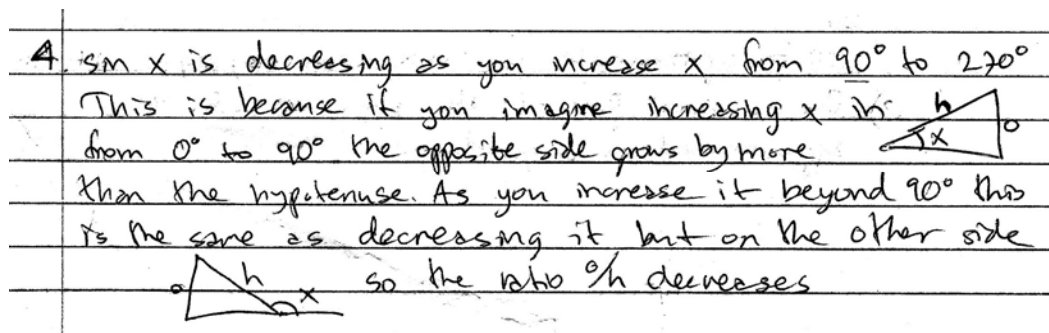 4. sin x is decreasing as you increase x from 90° to 270°
This is because if you imagine increasing x in h
x o
from 0° to 90° the opposite side grows by more
than the hypotenuse. As you increase it beyond 90° this
is the same as decreasing it but on the other side
o h x so the ratio o/h decreases